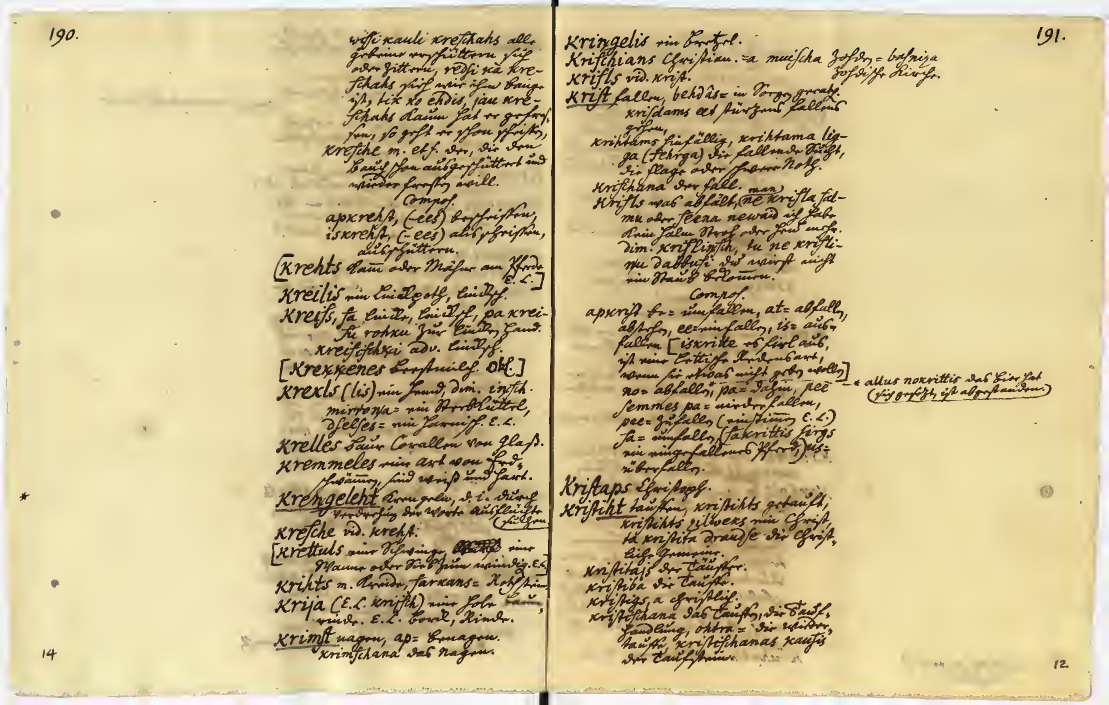 190.
wissi kauli kreschahs alle
gebeine erschüttern sich
oder zittern, redsi ka kre-
schahs sieh wie ihm bange
ist, tik ko ehdis, jau kre-
schahs kaum hat er gefres-
sen, so geht er schon
kresche m. et f. der, die den
ausgeschüttert und
wieder fressen will.
Compos.
apkrehst, (-ees)
iskrehst, (-ees)
ausschüttern.
[Krehts Kam oder Mähne am Pferde
E. L.]
Kreilis ein Linkpoth, Linksch.
Kreiss, sa linke, linksch, pa krei-
su rohku zur linken Hand.
kreisischki adv. linksch.
[Krekkenes Beestmilch. Obl.]
Krekls (lis) ein Hemd, dim. insch.
mirrona= ein Sterbkittel,
dselses= ein Harnisch. E. L.
Krelles Baur Corallen von Glaß.
Kremmeles eine Art von Erd-
schwämen, sind weiß und hart.
Krengeleht krengeln, d. i. durch
der Worte Ausflüchte
suchen
Kresche vid. krehst.
[Krettuls eine Schwinge, eine
Wanne oder Sieb zum windig. E. L.
Krihts m. Kreide, sarkans= Rothstein
Krija (E. L. Krijsch) eine hole
rinde. E. L. Borck, Rinde.
Krimst nagen, ap= benagen.
Krimschana das Nagen.
14
191.
Kringelis ein Bretzel.
Krischians Christian. =a muischa
= basniza
Kirche.
Krisls vid. krist.
Krist fallen, behdâs= in Sorgen gerath.
krisdams eet stürzens fallens
gehen,
krihtams hinfällig, krihtama lig-
ga (sehrga) die fallende Sucht,
die Plage oder schwere Noth.
Krischana der fall. man
Krisls was abfält, ne krisla sal-
mu oder seena newaid ich habe
kein Halm Stroh oder Heu mehr.
dim. krislinsch, tu ne krisli-
nu dabbusi du wirst nicht
ein Staub bekommen.
Compos.
apkrist be= umfallen, at= abfall,
abstehen, ee= einfallen, is= aus-
fallen [iskritte es fiel aus,
ist eine Lettische Redensart,
wenn sie etwas nicht geben wollen]
no= abfallen, pa= dahin, pee
semmes pa= niederfallen,
pee= zufallen (einstimen E. L.)
sa= umfallen (sakrittis sirgs
ein eingefallenes Pferd,) us=
überfallen.
* allus nokrittis das Bier hat
sich gesetzt, ist abgestanden.
Kristaps Christoph.
Kristiht tauffen, kristihts getauft,
kristihts zilweks ein Christ,
ta kristita draudse die Christ-
liche Gemeine.
kristitajs der Täuffer.
kristiba die Tauffe.
kristigs, a christlich.
kristischana das Tauffen, die Tauf-
handlung, ohtra= die wieder-
tauffe, kristischanas kausis
der Taufstein.
12